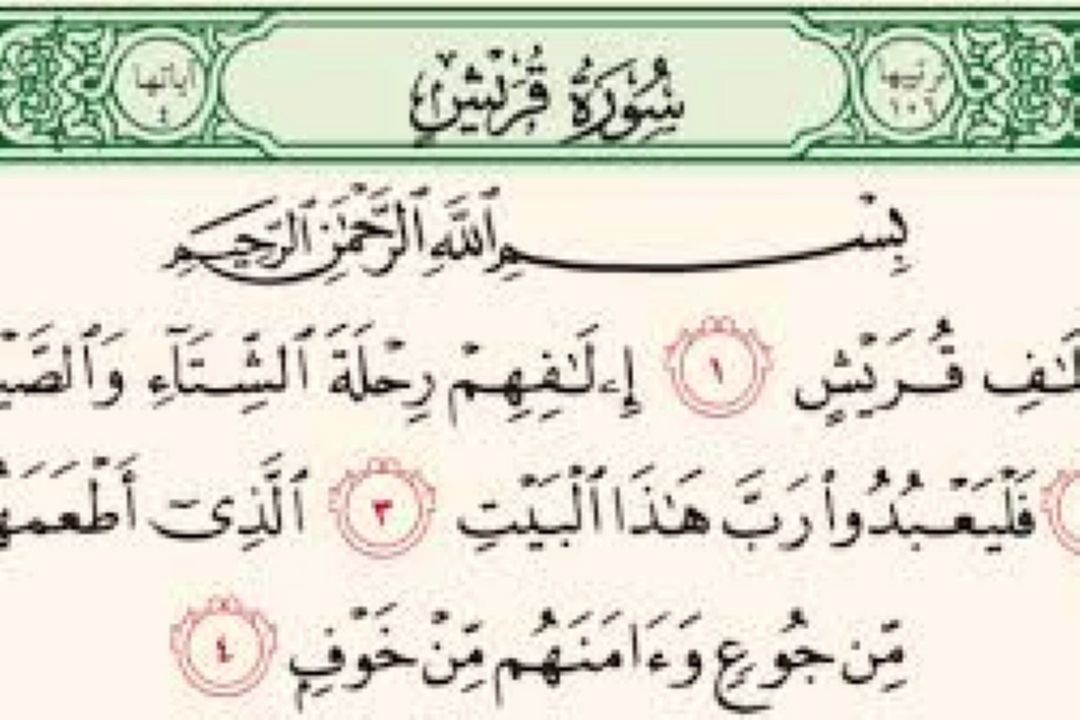 ترتيبها ١٠٦ سُورَةُ قُرَيْشٍ آياتها ٤
بِسْمِ ٱللَّهِ ٱلرَّحْمَٰنِ ٱلرَّحِيمِ
قُرَيْشٍ ١ إِۦلَٰفِهِمْ رِحْلَةَ ٱلشِّتَآءِ
فَلْيَعْبُدُوا۟ رَبَّ هَٰذَا ٱلْبَيْتِ ٣ ٱلَّذِىٓ
مِّن جُوعٍ وَءَامَنَهُم مِّنْ خَوْفٍۭ ٤